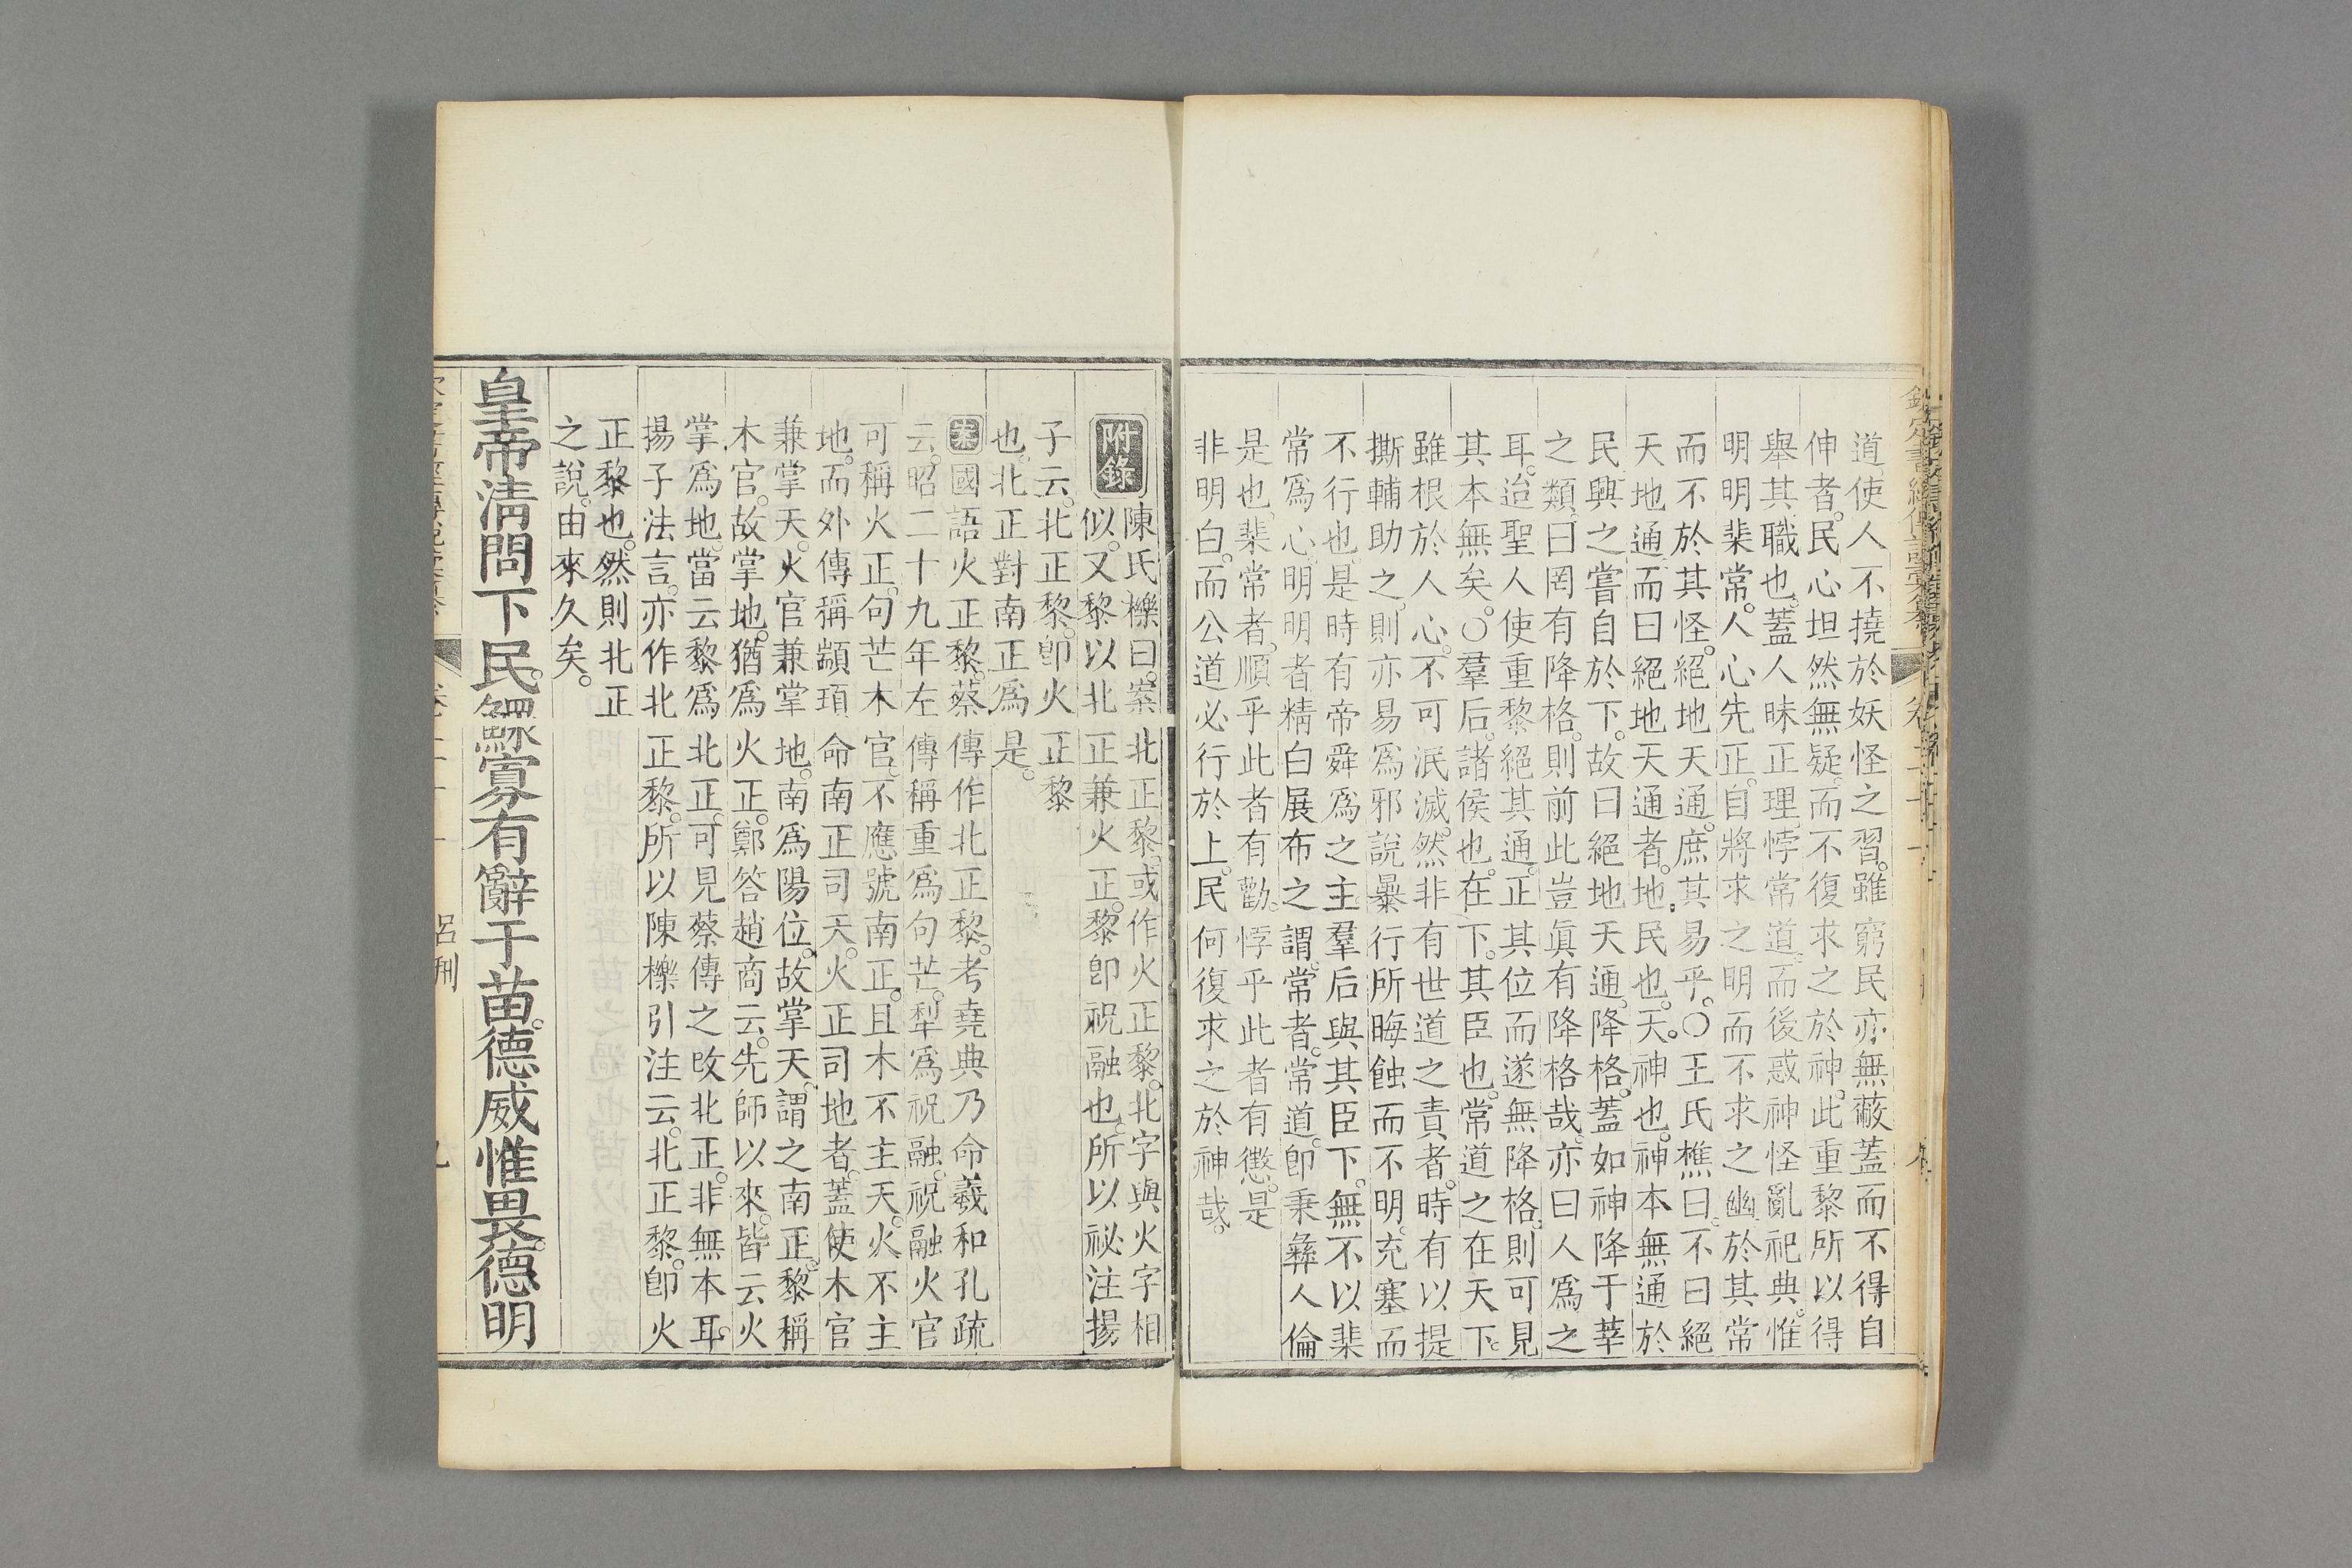 道使人不撓於妖怪之習。雖窮民亦無蔽蓋而不得自
伸者。民心坦然無疑。而不復求之於神。此重黎所以得
舉其職也。蓋人昧正理。悖常道。而後惑神怪亂祀典。惟
明明棐常。人心先正。自將求之明而不求之幽於其常
而不於其怪。絕地天通。庶其易乎。○王氏樵曰。不曰絕
天地通而曰絕地天通者。地。民也。天。神也。神本無通於
民興之嘗自於下。故曰絕地天通。降格。蓋如神降于莘
之類。曰罔有降格。則前此豈眞有降格哉。亦曰人爲之
耳。迨聖人使重黎絕其通。正其位而遂無降格。則可見
其本無矣。○羣后。諸侯也。在下。其臣也。常道之在天下。
雖根於人心。不可泯滅。然非有世道之責者。時有以提
撕輔助之。則亦易爲邪說暴行所晦蝕而不明。充塞而
不行也。是時有帝舜爲之主。羣后與其臣下。無不以棐
常爲心。明明者。精白展布之謂。常者。常道。卽秉彝人倫
是也。棐常者。順乎此者有勸。悖乎此者有懲。是
非明白。而公道必行於上。民何復求之於神哉。
附錄
陳氏櫟曰。案北正黎。或作火正黎。北字與火字相
似。又黎以北正兼火正。黎卽祝融也。所以祕注揚
子云。北正黎。卽火正黎
也。北正對南正爲是。
案國語火正黎。蔡傳作北正黎。考堯典乃命羲和孔疏
云。昭二十九年左傳稱重爲句芒。犁爲祝融。祝融火官
可稱火正。句芒木官。不應號南正。且木不主天。火不主
地。而外傳稱顓頊命南正司天。火正司地者。蓋使木官
兼掌天。火官兼掌地。南爲陽位。故掌天。謂之南正。黎稱
木官。故掌地。猶爲火正。鄭答趙商云。先師以來。皆云火
掌爲地。當云黎爲北正。可見蔡傳之改北正。非無本耳。
揚子法言。亦作北正黎。所以陳櫟引注云。北正黎。卽火
正黎也。然則北正
之說。由來久矣。
皇帝淸問下民。鰥寡有辭于苗。德威惟畏。德明
呂刑